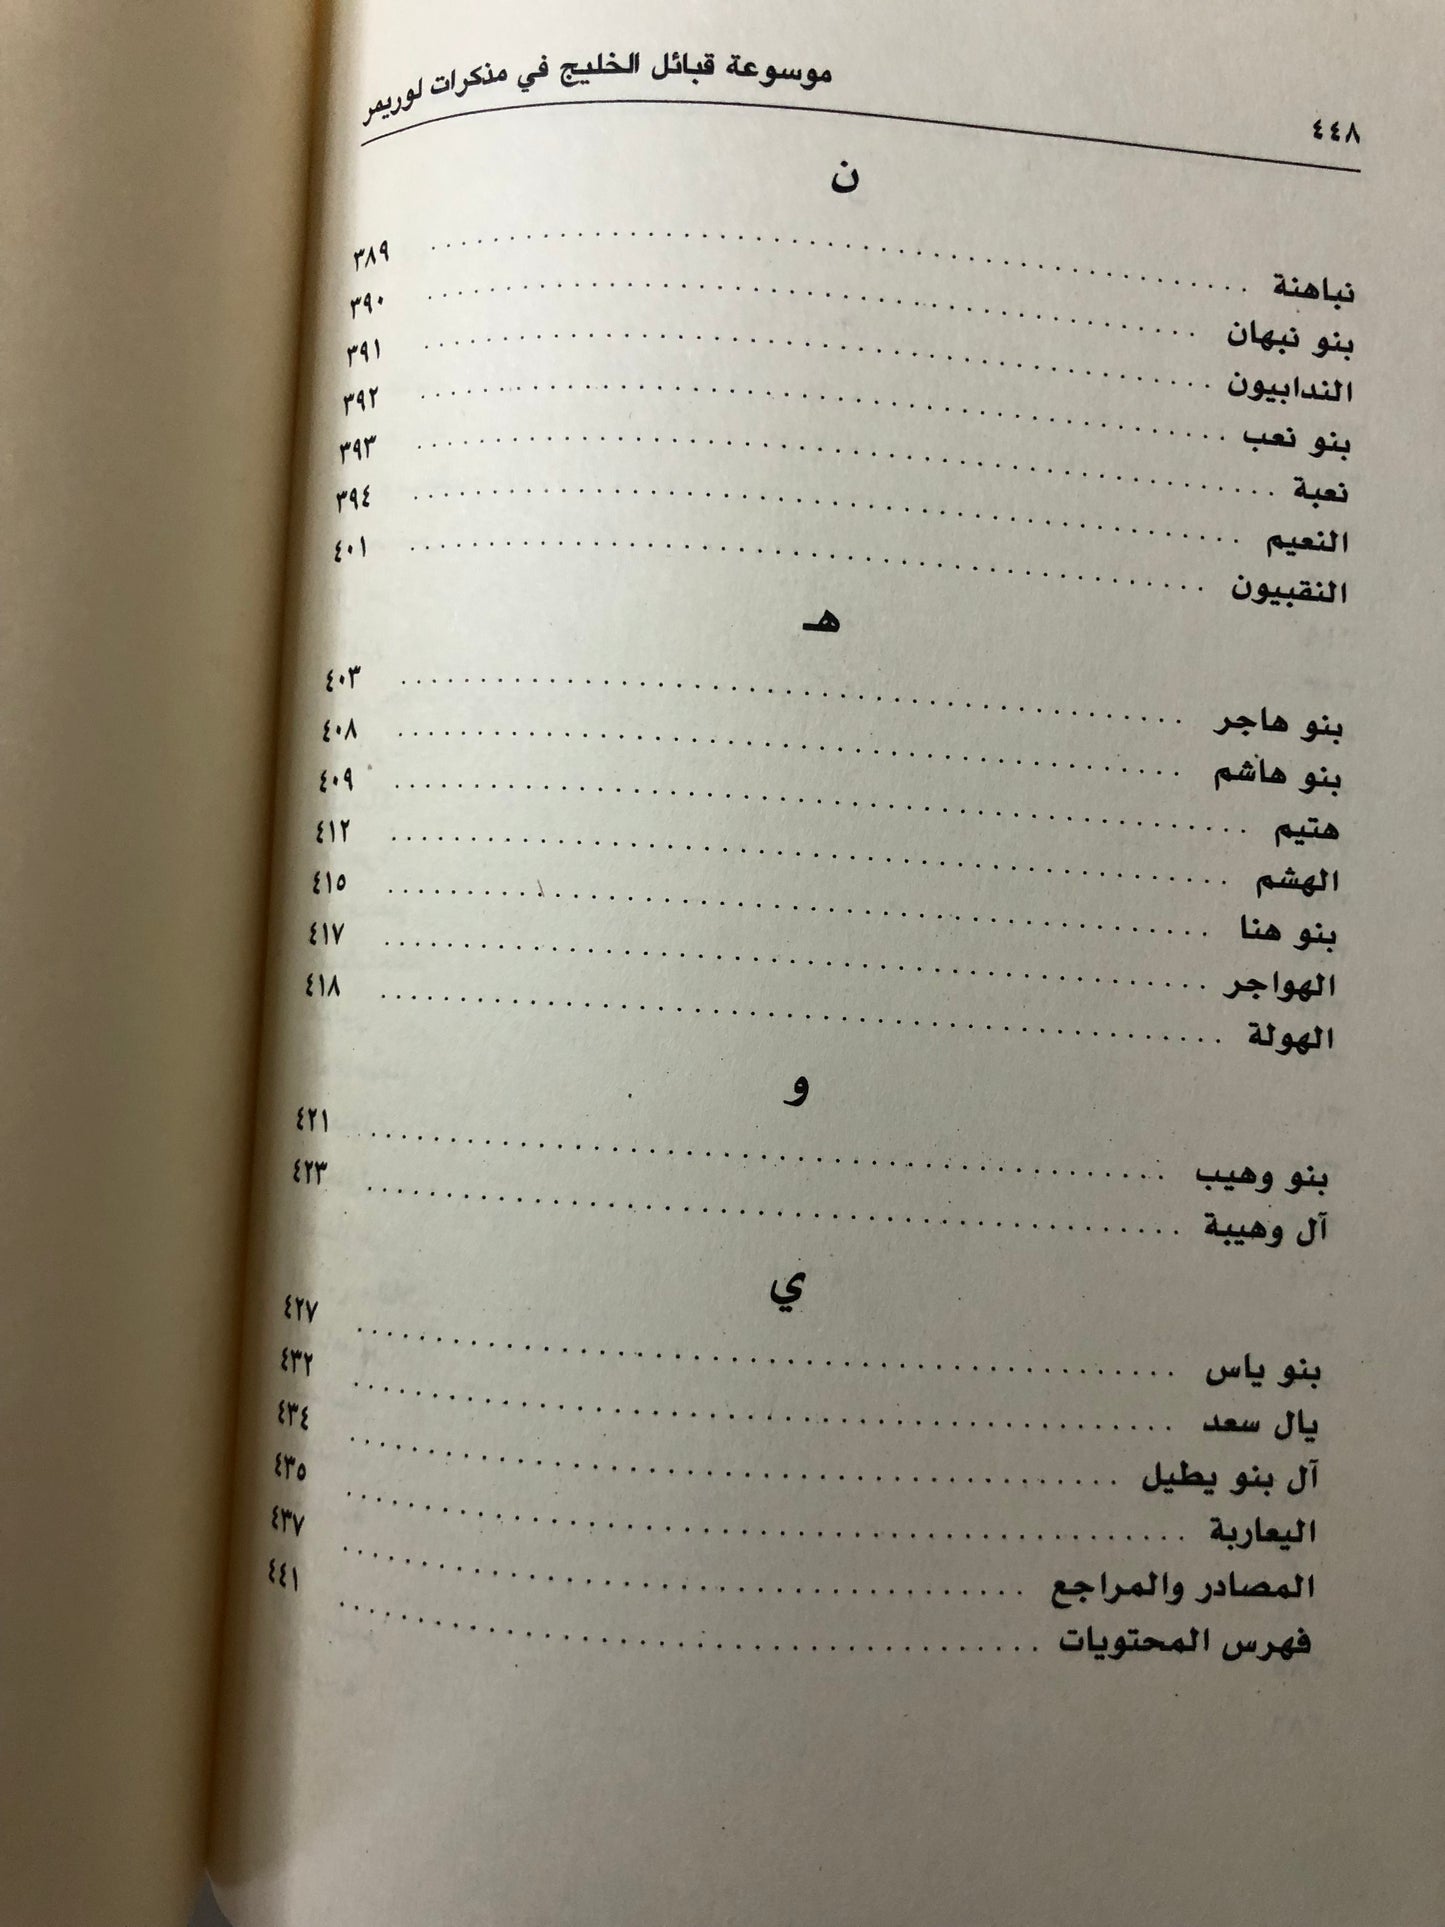 ٤٤٨ موسوعة قبائل الخليج في مذكرات لوريمر
ن
نباهنة ٣٨٩
بنو نبهان ٣٩٠
الندابيون ٣٩١
بنو نعب ٣٩٢
نعبة ٣٩٣
النعيم ٣٩٤
النقبيون ٤٠١
هـ
بنو هاجر ٤٠٣
بنو هاشم ٤٠٨
هتيم ٤٠٩
الهشم ٤١٢
بنو هنا ٤١٥
الهواجر ٤١٧
الهولة ٤١٨
و
بنو وهيب ٤٢١
آل وهيبة ٤٢٣
ي
بنو ياس ٤٢٧
يال سعد ٤٣٢
آل بنو يطيل ٤٣٤
اليعاربة ٤٣٥
المصادر والمراجع ٤٣٧
فهرس المحتويات ٤٤١